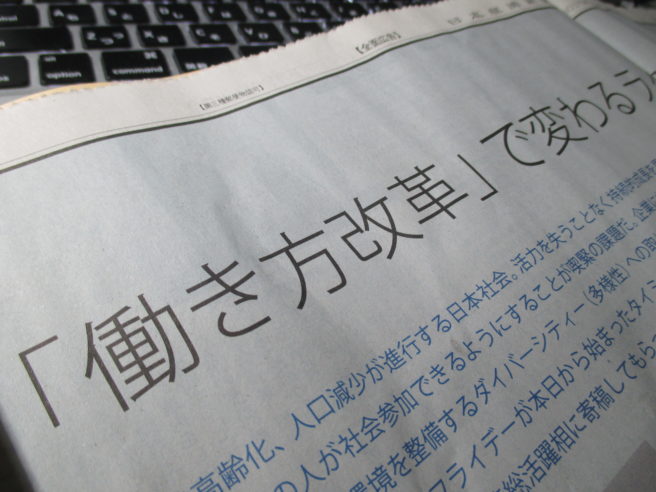 option
command
⌘
英数
日本経済新
【全面広告】
【第三種郵便物認可】
「働き方改革」で変わるラ
高齢化、人口減少が進行する日本社会。活力を失うことなく持続的成長を
の人が社会参加できるようにすることが喫緊の課題だ。企業に
環境を整備するダイバーシティー(多様性)への取
フライデーが本日から始まったタイミ
総活躍相に寄稿してもらっ